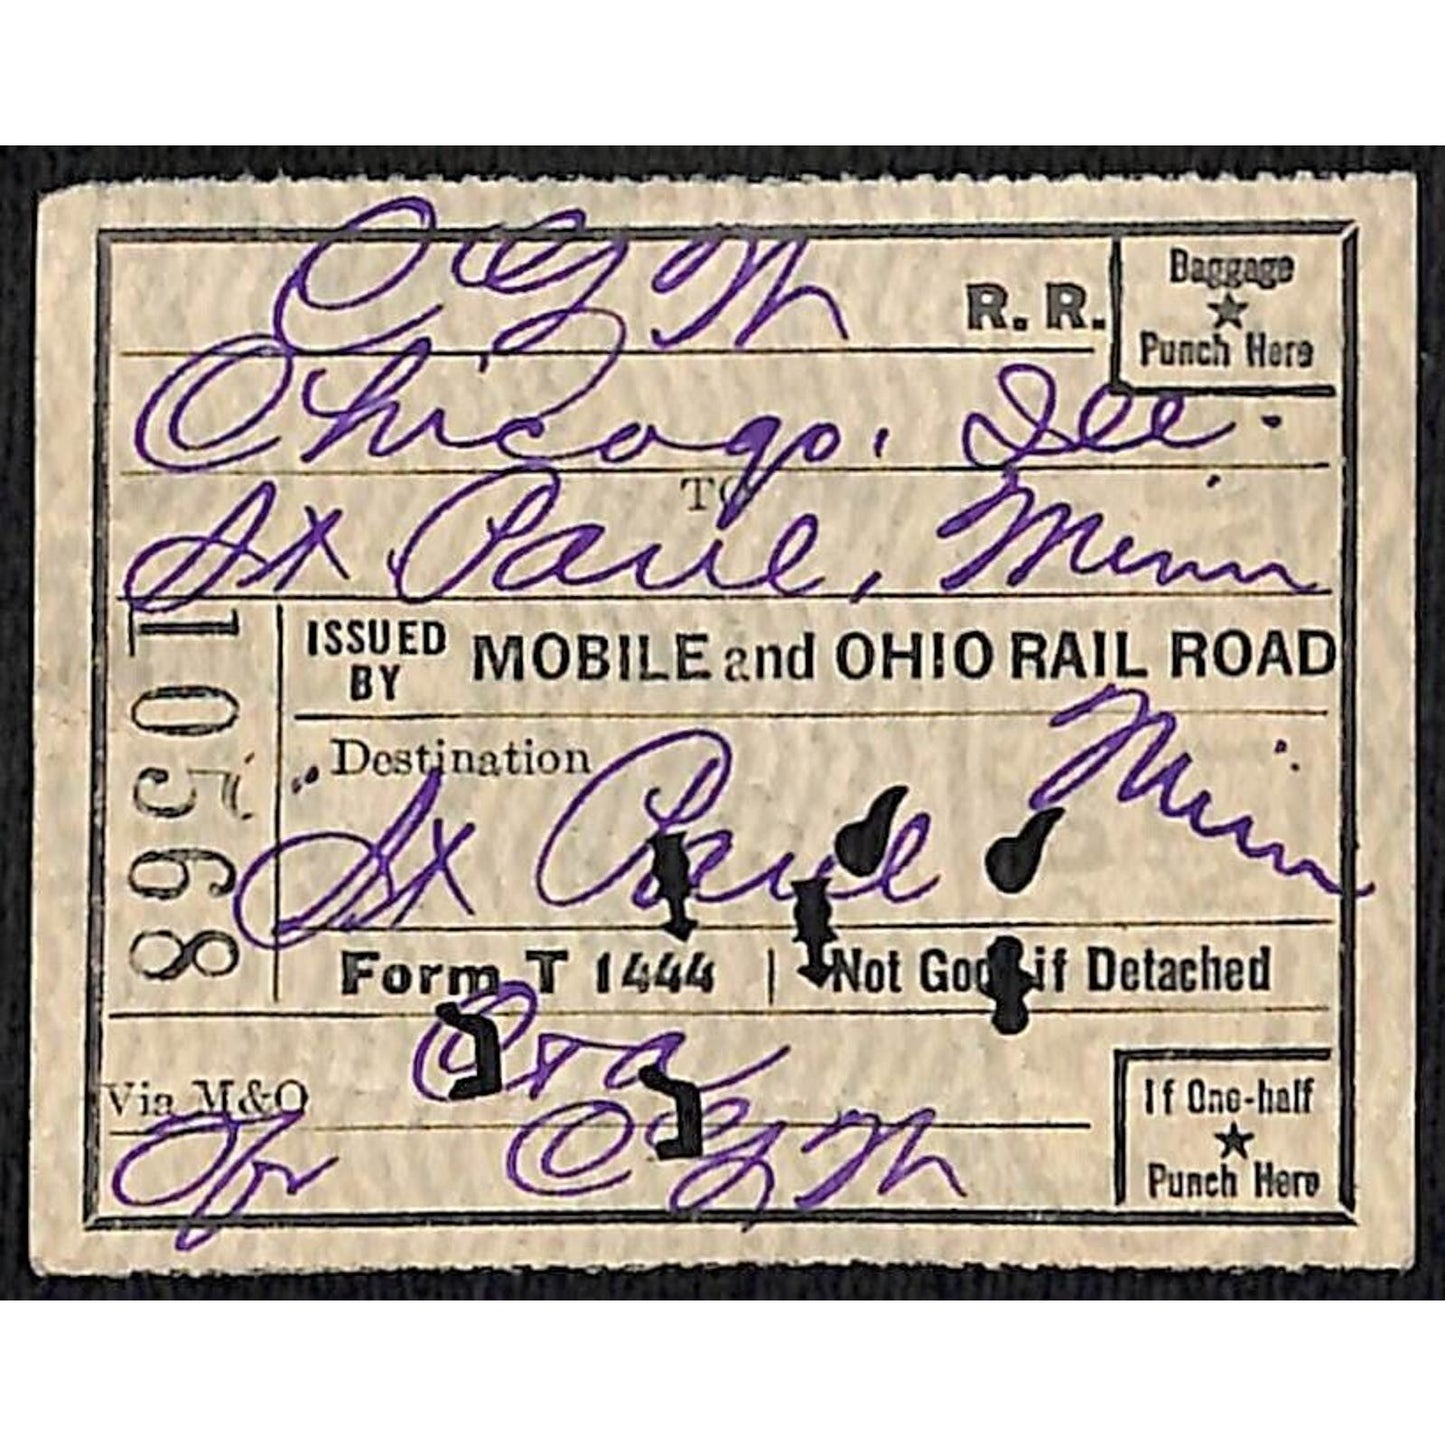 C G W R. R.
Baggage
★
Punch Here
Chicago, Ill.
TO
St Paul, Minn
10568
ISSUED BY MOBILE and OHIO RAIL ROAD
Destination
St Paul Minn
Form T 1444 | Not Good if Detached
Via M&O
C G W
If One-half
★
Punch Here